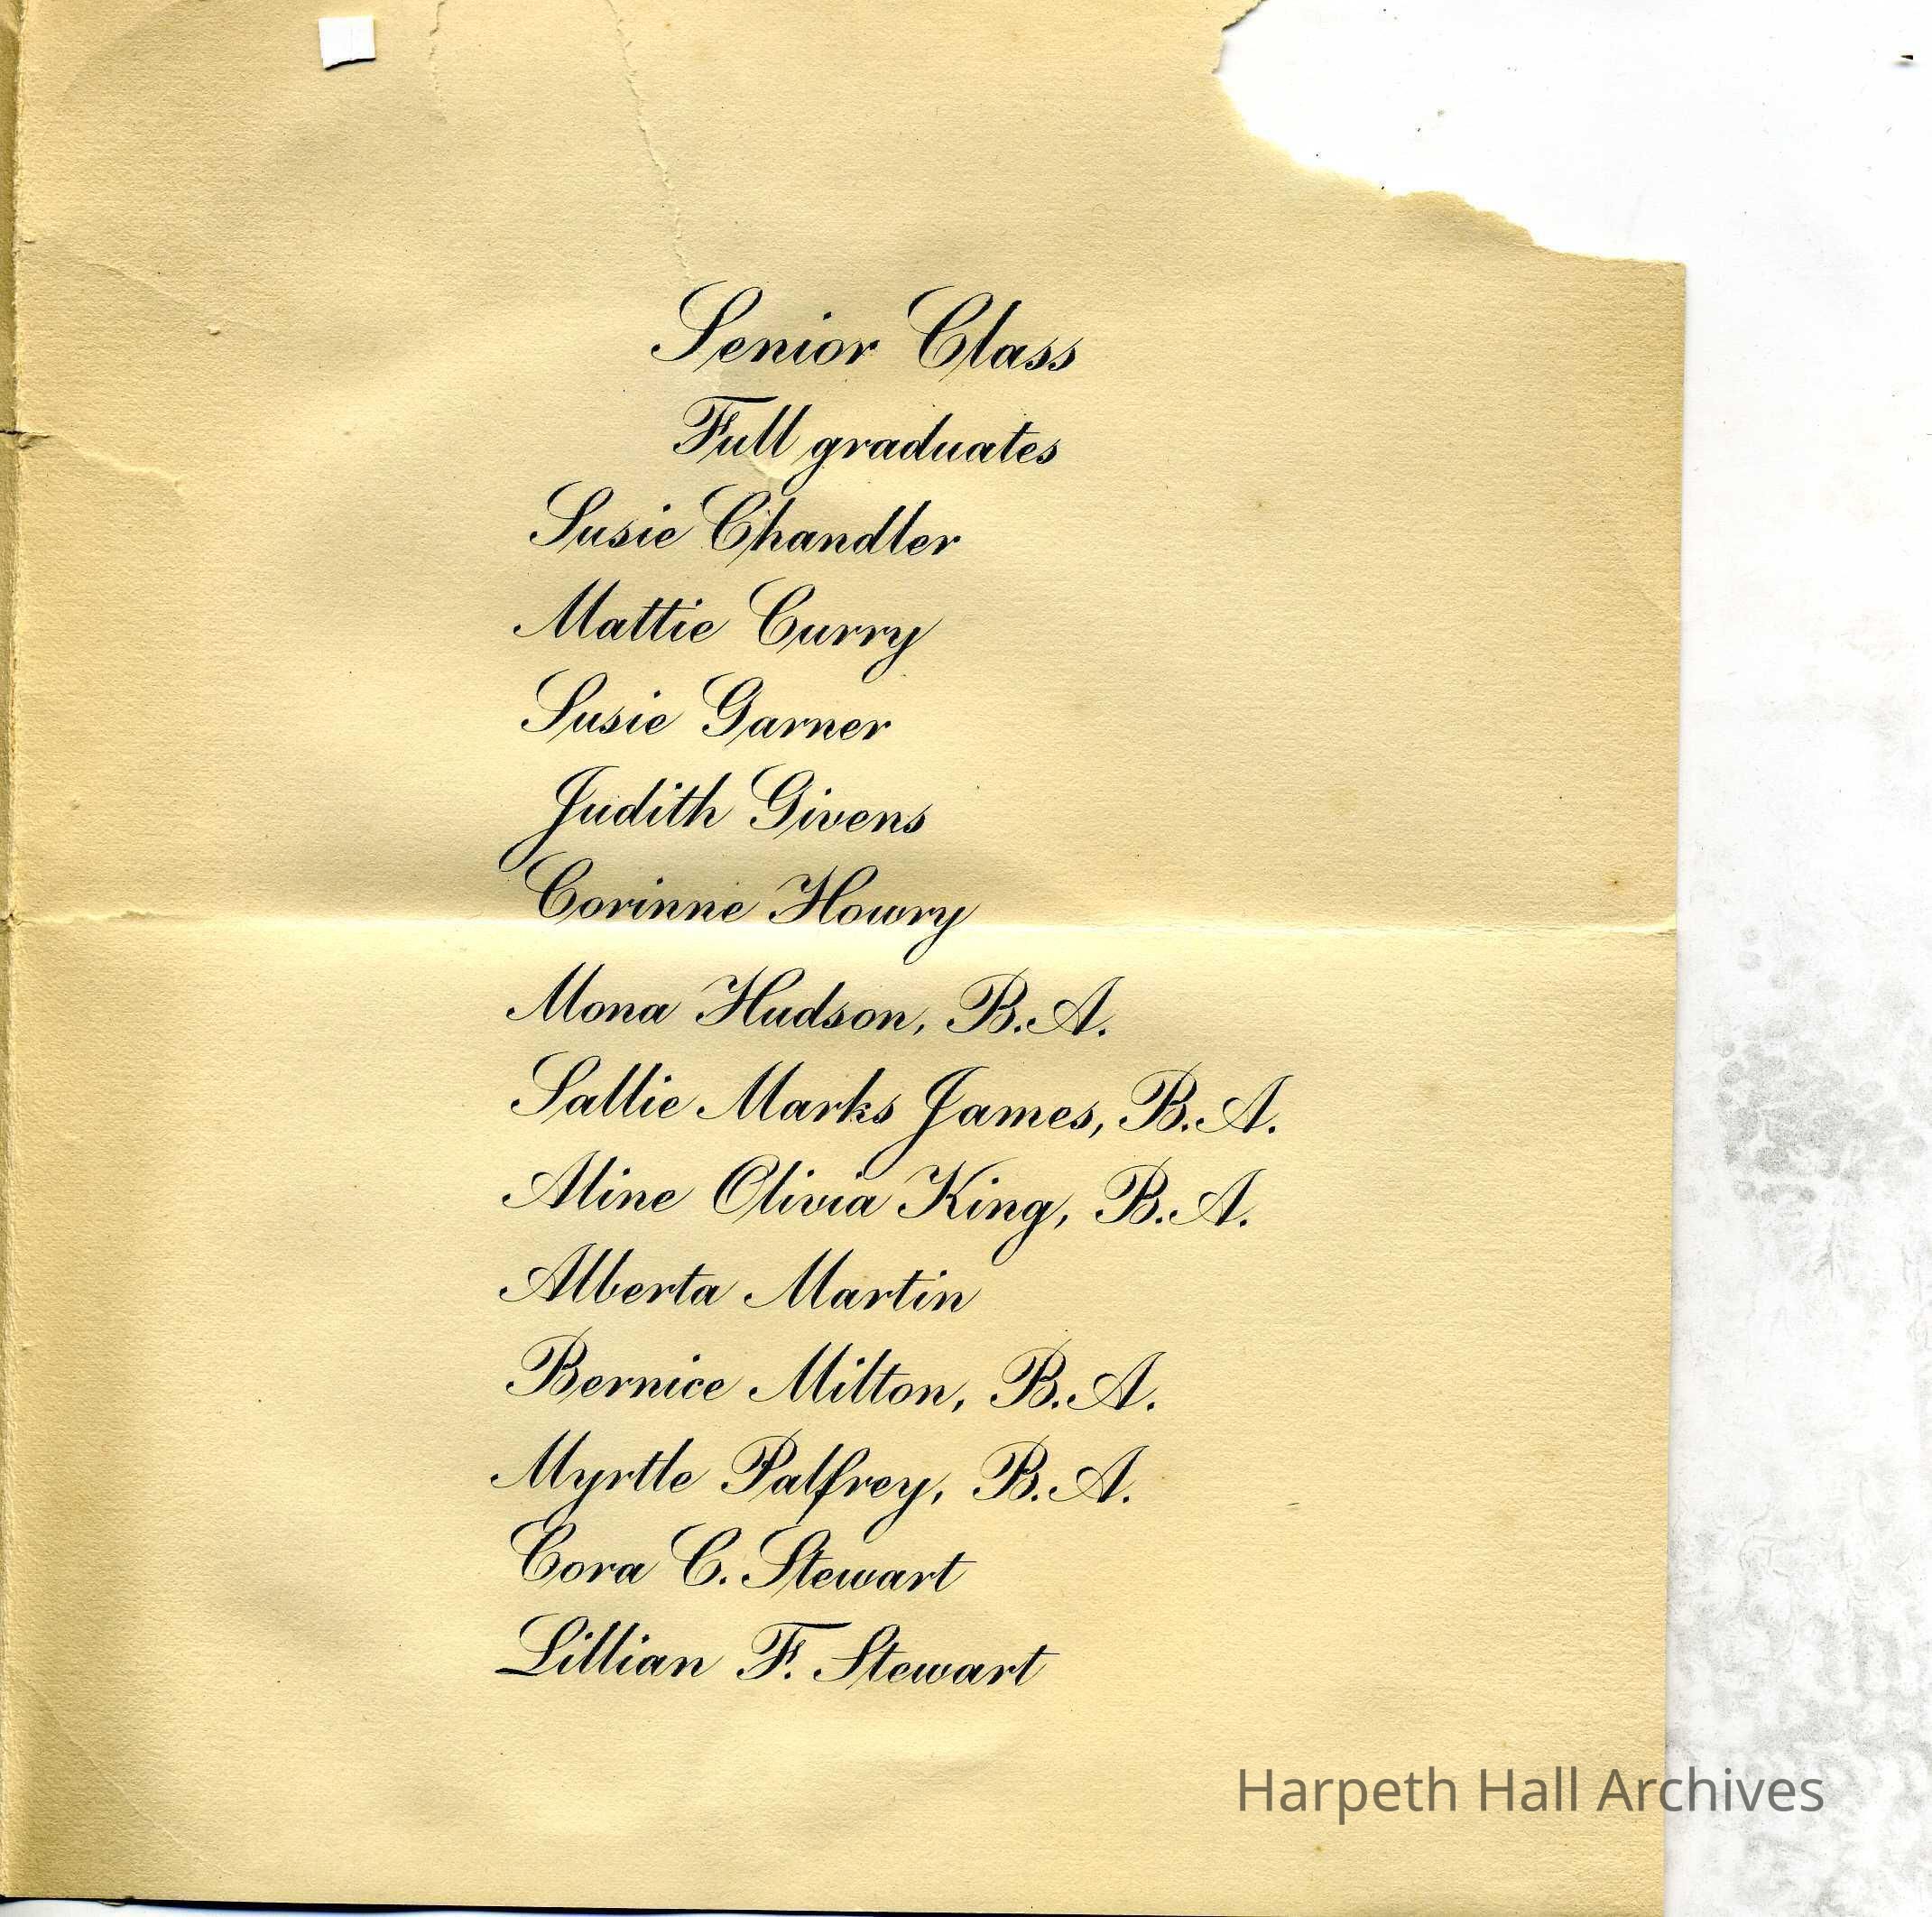 Senior Class
Full graduates
Susie Chandler
Mattie Curry
Susie Garner
Judith Givens
Corinne Howry
Mona Hudson, B.A.
Sallie Marks James, B.A.
Aline Olivia King, B.A.
Alberta Martin
Bernice Milton, B.A.
Myrtle Palfrey, B.A.
Cora C. Stewart
Lillian F. Stewart
Harpeth Hall Archives